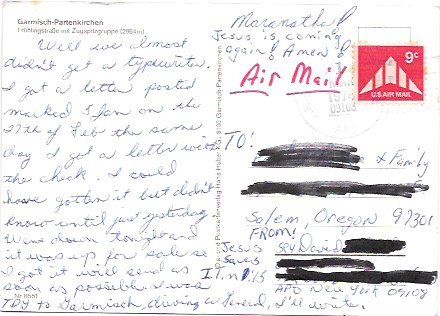 Garmisch-Partenkirchen
Frühlingstraße mit Zugspitzgruppe (2964m)
Well we almost
didn't get a typewriter.
I got a letter posted
marked 5 Jan on the
27th of Feb the same
day I got a letter with
the check. I could
have gotten it but didn't
know until just yesterday.
Went down tonight and
it was up for sale so
I got it will send as
soon as possible. I was
TDY to Garmisch, driving a
I'll write.
Nr. 8551
Post- und Postkartenverlag Hans Huber KG, 8100 Garmisch-Partenkirchen
Maranatha!
Jesus is coming
again! Amen!
Air Mail
9c
U.S. AIR MAIL
09108
TO:
& Family
Salem, Oregon 97301
FROM:
Jesus
Saves
SP4 David
I Tim 1:15
APO New York 09108